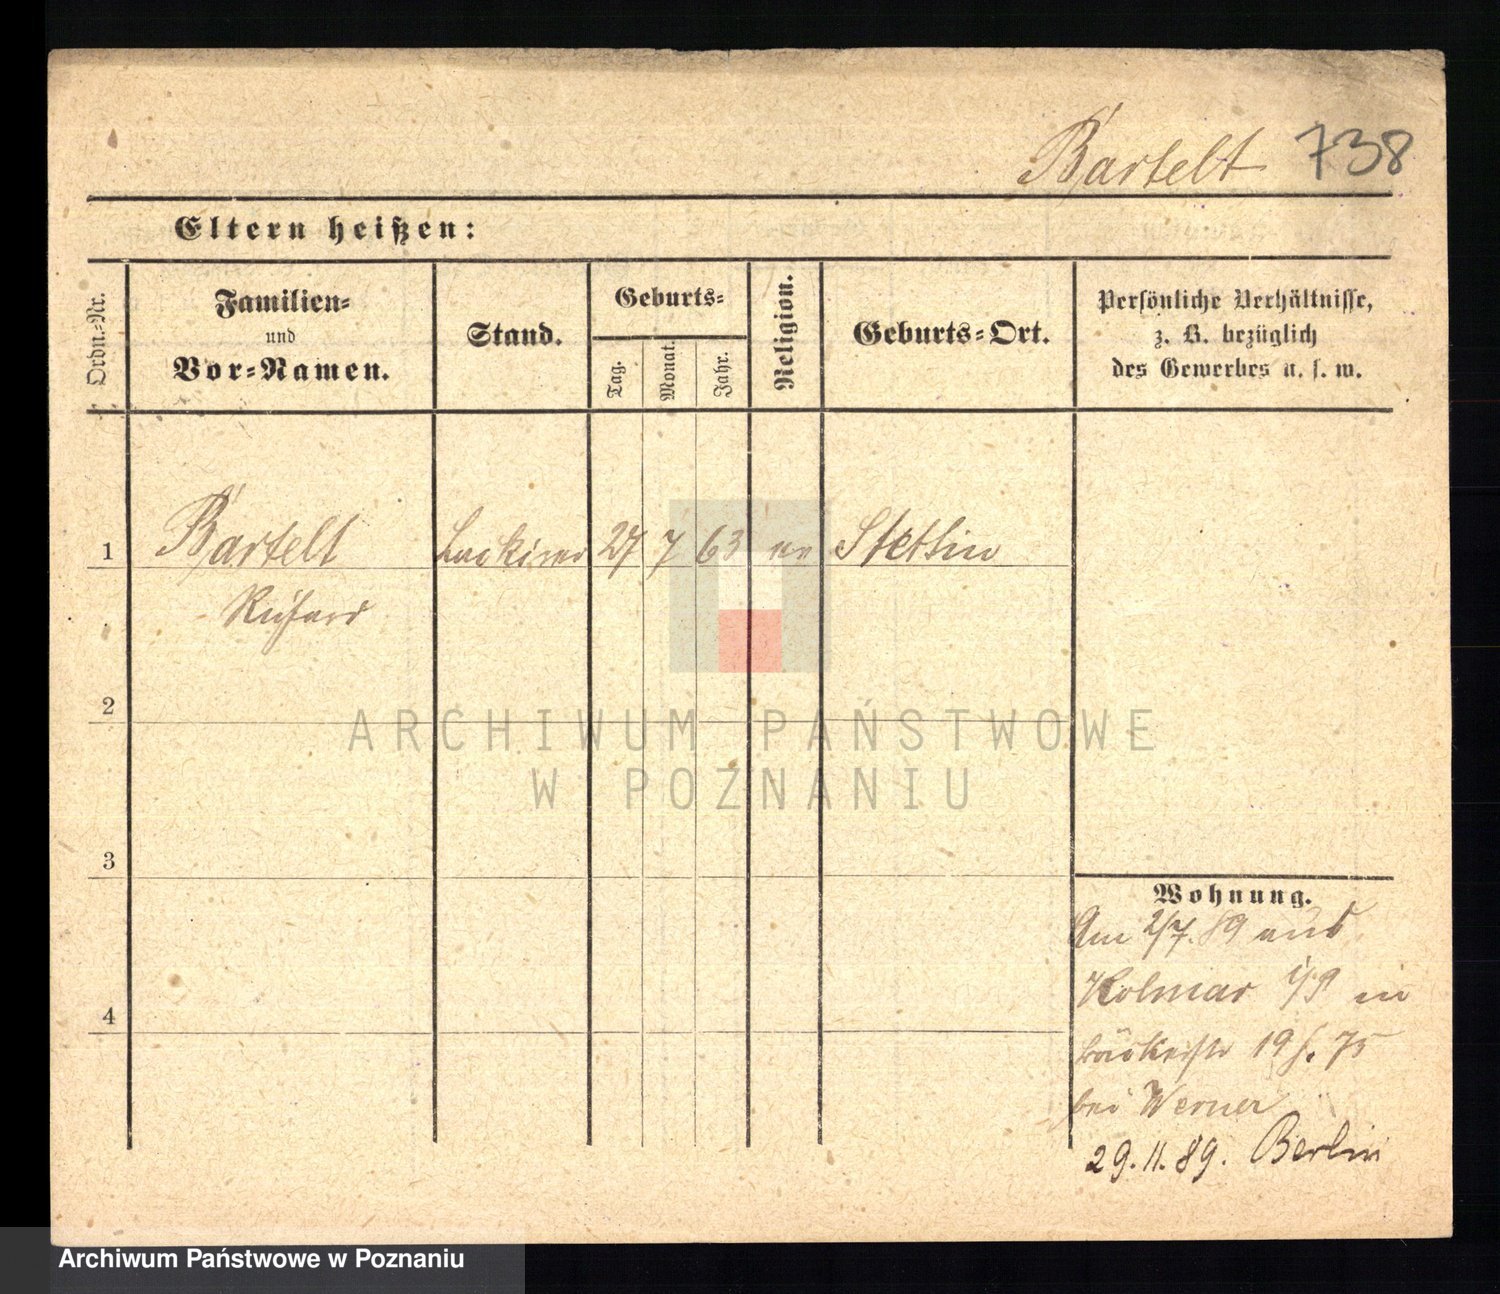 Bartelt 738
Eltern heißen:
Ordn.-Nr.
Familien-
und
Vor-Namen.
Stand.
Geburts-
Tag.
Monat.
Jahr.
Religion.
Geburts-Ort.
Persönliche Verhältnisse,
z. B. bezüglich
des Gewerbes u. s. w.
1 Bartelt Lackirer 27 7 63 ev Stettin
Richard
2
ARCHIWUM PAŃSTWOWE
W POZNANIU
3
Wohnung.
Am 2/7. 89 aus
Kolmar i/P in
4
19 75
bei Werner
29.11.89. Berlin
Archiwum Państwowe w Poznaniu